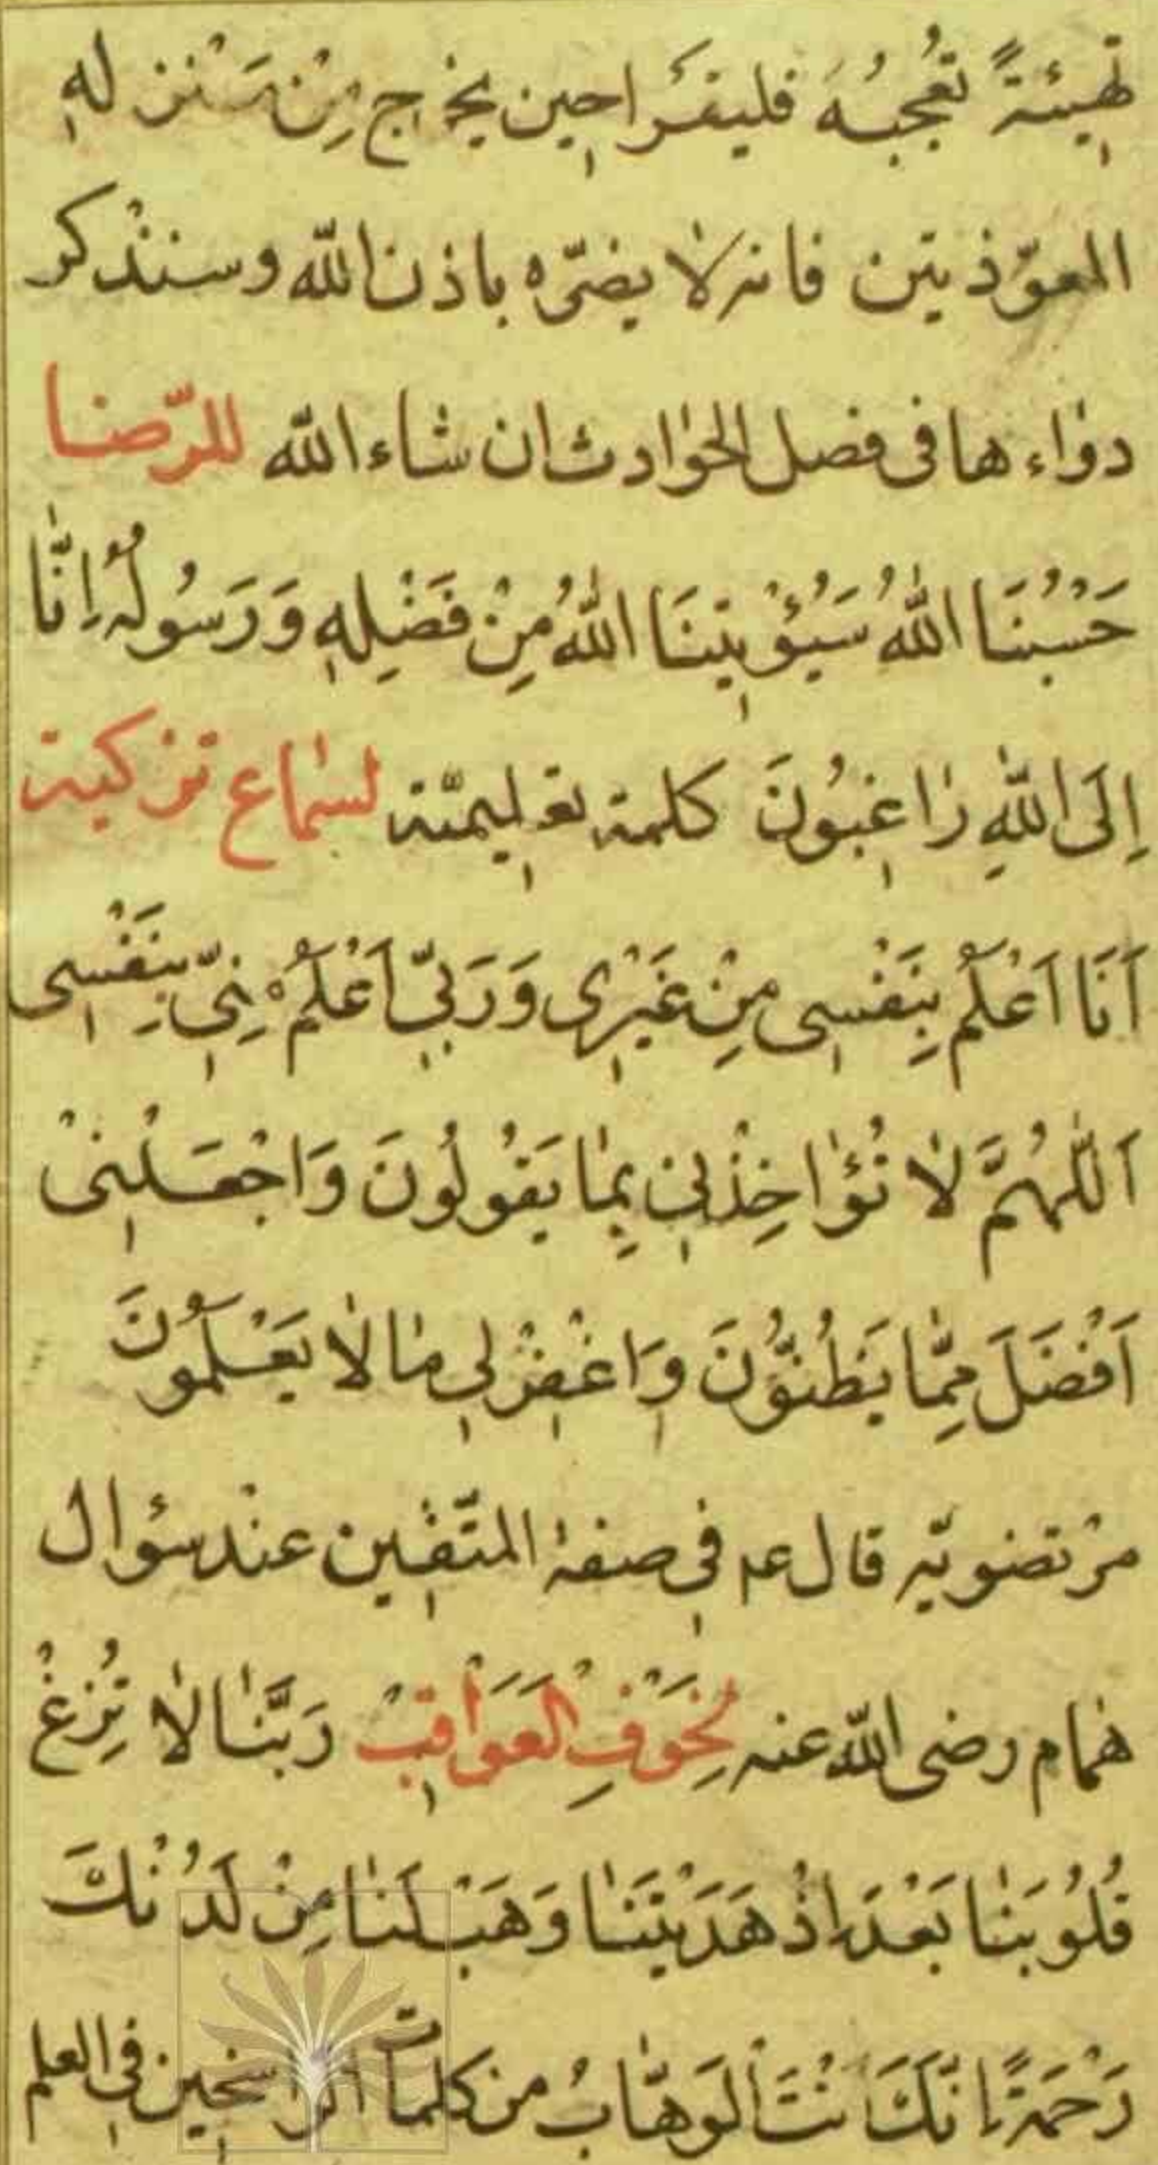 تهيئةً تُعجبُهُ فليقَرا حين يخرج مِنْ مَنْزله
المعوّذتين فانه لا يضرّه باذن الله وسنذكر
دواءها فى فصل الحوادث ان شاء الله للرّضا
حَسْبُنَا اللهُ سَيُؤْتِينَا اللهُ مِنْ فَضْلِهِ وَرَسُولُهُ اِنَّا
اِلَى اللهِ رَاغِبُونَ كلمة تعليميّة لسماع تزكية
اَنَا اَعْلَمُ بِنَفْسى مِنْ غَيْرى وَرَبّى اَعْلَمُ مِنّى بِنَفْسى
اَللّهُمَّ لا تُؤاخِذْنى بِما يَقُولُونَ وَاجْعَلْنىْ
اَفْضَلَ مِمّا يَظُنُّونَ وَاغْفِرْلى ما لا يَعْلَمُونَ
مرتضويّه قال عم فى صفة المتّقين عند سؤال
همام رضى الله عنه لِخَوْفِ الْعَوَاقِبْ رَبَّنا لا تُزِغْ
قُلُوبَنا بَعْدَ اِذْ هَدَيْتَنا وَهَبْ لَنا مِنْ لَدُنْكَ
رَحْمَةً اِنَّكَ اَنْتَ الْوَهّابُ من كلمات الراسخين فى العلم